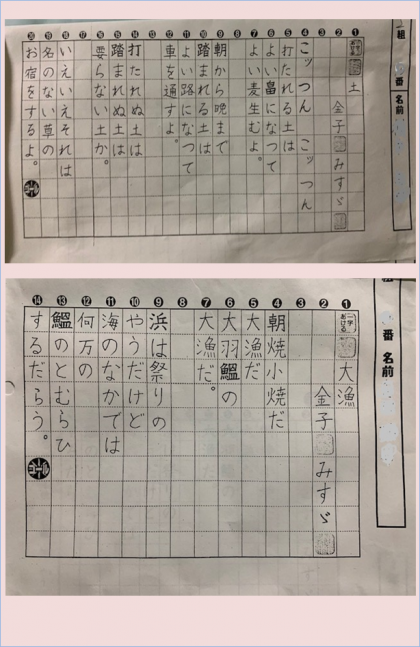 組 番 名前
土
金子 みすゞ
こッつん こッつん
打たれる土は
よい畠になつて
よい麦生むよ。
朝から晩まで
踏まれる土は
よい路になつて
車を通すよ。
打たれぬ土は
踏まれぬ土は
要らない土か。
いえいえそれは
名のない草の
お宿をするよ。
番 名前
一字あける 大漁
金子 みすゞ
朝焼小焼だ
大漁だ
大羽鰮の
大漁だ。
浜は祭りの
やうだけど
海のなかでは
何万の
鰮のとむらひ
するだらう。